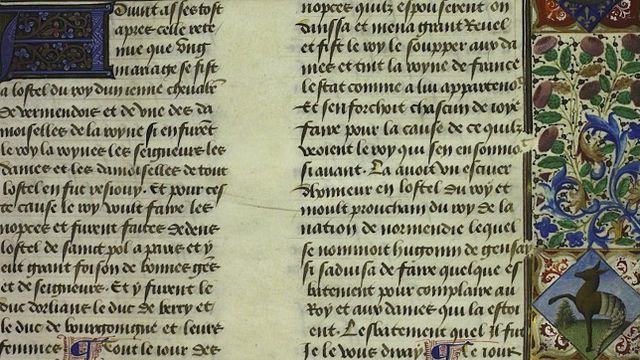 Avint asses tost
apres celle rete
nue que vng
mariage se fist
a lostel du roy dun ienne cheualr̄
de vermendois et de vne des da
moiselles de la royne si en furēt
le roy la royne les seigneurs les
dames et les damoiselles de tout
lostel en fut resiouy. Et pour ces
te cause le roy voult faire les
nopces et furent faites dedens
lostel de saint pol a paris et y
eut grant foison de bonnes gēs
et de seigneurs. Et y furent le
duc dorliens le duc de berry et
le duc de bourgongne et leurs
femmes Tout le iour des
nopces quilz espouserent on
danssa et mena grant Reuel
et fist le roy le soupper aux da
mes et tint la royne de france
lestat comme a lui appartenoit
Et sen forchoit chascun de ioye
faire pour la cause de ce quilz
veoient le roy qui sen ensonnioit
si auant. La auoit vn escuier
dhonneur en lostel du roy et
moult prouchain du roy de la
nation de normendie lequel
se nommoit hugonin de gensay
si saduisa de faire quelque es
batement pour complaire au
Roy et aux dames qui la estoi
ent. Lesbatement quel il fut
Je le vous diray Le iour